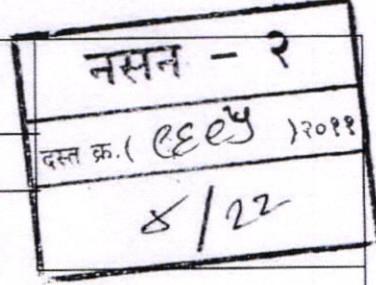 नसन - २
दस्त क्र. ( ९६९५ ) २०११
४ / 22